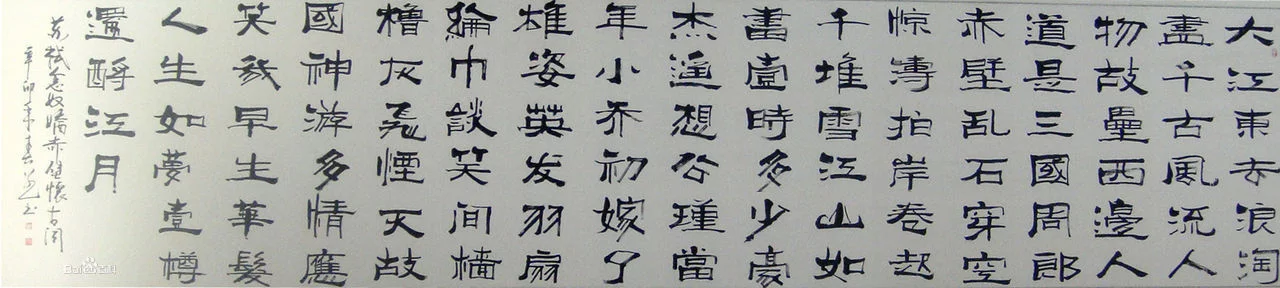 大江東去浪淘
盡千古風流人
物故壘西邊人
道是三國周郎
赤壁乱石穿空
惊涛拍岸卷起
千堆雪江山如
畫壹時多少豪
杰遥想公瑾當
年小乔初嫁了
雄姿英发羽扇
綸巾談笑间檣
櫓灰飛煙灭故
國神游多情應
笑我早生華髮
人生如夢壹樽
還酹江月
苏軾念奴嬌赤壁懷古詞
辛卯年春书
Baidu百科